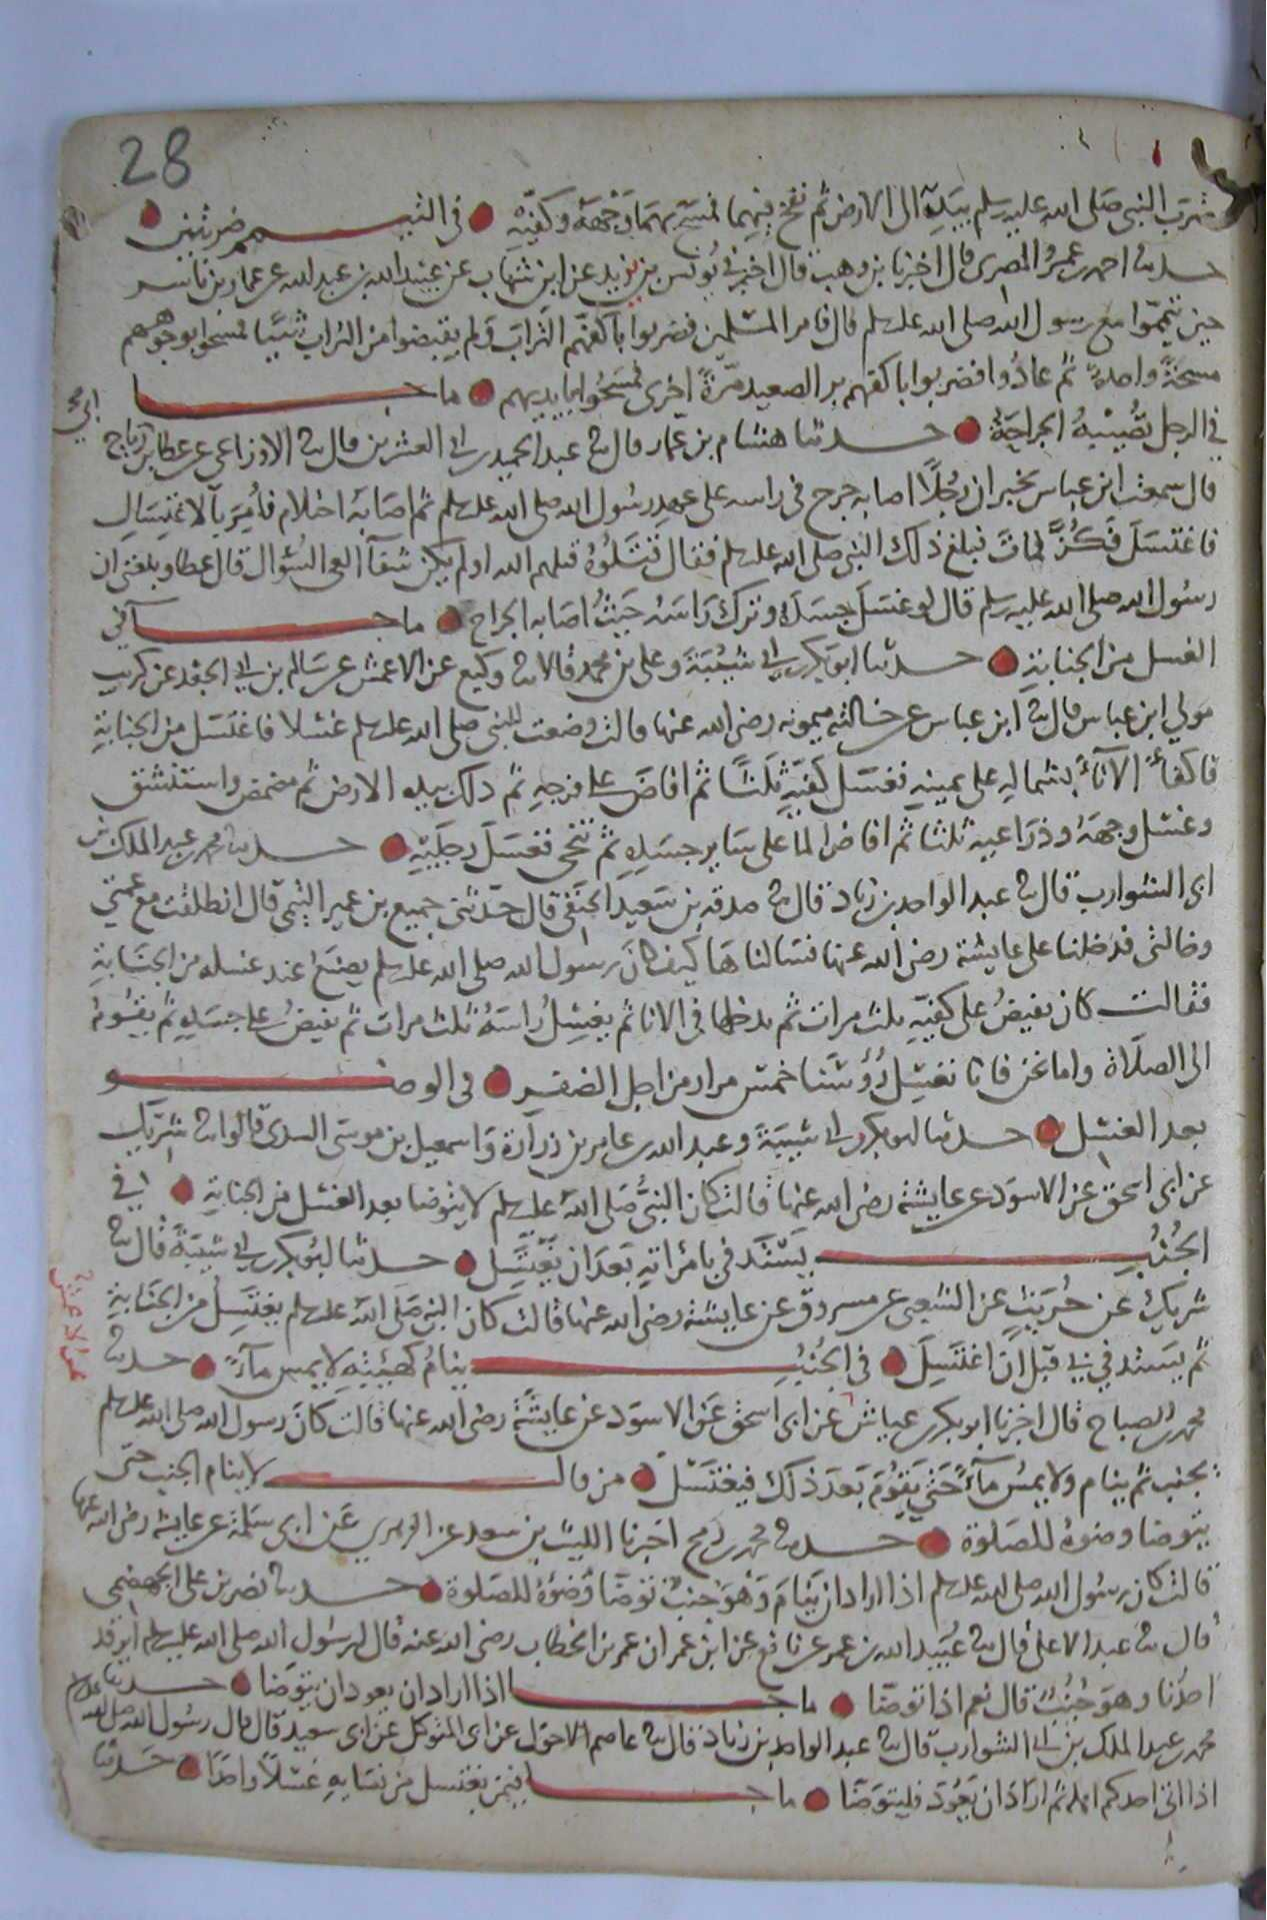 28
ضرب النبي صلى الله عليه وسلم بيديه الى الارض ثم نفخ فيهما فمسح بهما وجهه وكفيه ● في التيمم ضربتين ●
حدثنا احمد بن عمرو المصري قال اخبرنا بن وهب قال اخبرني يونس بن يزيد عن ابن شهاب عن عبيد الله بن عبد الله عن عمار بن ياسر
حين تيمموا مع رسول الله صلى الله عليه وسلم قال فامر المسلمين فضربوا باكفهم التراب ولم يقبضوا من التراب شيئا فمسحوا بوجوههم
مسحة واحدة ثم عادوا فضربوا باكفهم بر الصعيد مرة اخرى فمسحوا بايديهم ● ما جا
في الرجل تصيبه الجراحة ● حدثنا هشام بن عمار قال ثنا عبد الحميد بن ابي العشرين قال ثنا الاوزاعي عن عطا بن ابي رباح
قال سمعت ابن عباس يخبر ان رجلا اصابه جرح في راسه على عهد رسول الله صلى الله عليه وسلم ثم اصابه احتلام فامر بالاغتسال
فاغتسل فكز فمات فبلغ ذلك النبي صلى الله عليه وسلم فقال قتلوه قتلهم الله اولم يكن شفآ العي السؤال قال عطا وبلغني ان
رسول الله صلى الله عليه وسلم قال لو غسل جسده وترك راسه حيث اصابه الجراح ● ما جا في
الغسل من الجنابة ● حدثنا ابو بكر بن ابي شيبة وعلي بن محمد قالا ثنا وكيع عن الاعمش عن سالم بن ابي الجعد عن كريب
مولي ابن عباس قال ثنا ابن عباس عن خالته ميمونه رضي الله عنها قالت وضعت للنبي صلى الله عليه وسلم غسلا فاغتسل من الجنابة
فاكفأ الانآء بشماله على يمينه فغسل كفيه ثلثا ثم افاض على فرجه ثم دلك بيده الارض ثم مضمض واستنشق
وغسل وجهه وذراعيه ثلثا ثم افاض الما على سائر جسده ثم تنحى فغسل رجليه ● حدثنا محمد بن عبد الملك بن
ابي الشوارب قال ثنا عبد الواحد بن زياد قال ثنا صدقه بن سعيد الحنفي قال حدثني جميع بن عمير التيمي قال انطلقت مع عمتي
وخالتي فدخلنا على عايشة رضي الله عنها فسالناها كيف كان رسول الله صلى الله عليه وسلم يصنع عند غسله من الجنابة
فقالت كان يفيض على كفيه ثلث مرات ثم يدخلها في الانا ثم يغسل راسه ثلث مرات ثم يفيض على جسده ثم يقوم
الى الصلاة واما نحن فانا نغسل رؤسنا خمس مرار من اجل الضفر ● في الوضو
بعد الغسل ● حدثنا ابو بكر بن ابي شيبة وعبد الله بن عامر بن زرارة واسمعيل بن موسى السدي قالوا ثنا شريك
عن ابي اسحق عن الاسود عن عايشة رضي الله عنها قالت كان النبي صلى الله عليه وسلم لا يتوضا بعد الغسل من الجنابة ● في
الجنب يستدفي بامراته بعد ان يغتسل ● حدثنا ابو بكر بن ابي شيبة قال ثنا
شريك عن حريث عن الشعبي عن مسروق عن عايشة رضي الله عنها قالت كان النبي صلى الله عليه وسلم يغتسل من الجنابة
ثم يستدفي بي قبل ان اغتسل ● في الجنب ينام كهيئته لا يمس مآء ● حدثنا
محمد بن الصباح قال اخبرنا ابو بكر بن عياش عن ابي اسحق عن الاسود عن عايشة رضي الله عنها قالت كان رسول الله صلى الله عليه وسلم
يجنب ثم ينام ولا يمس مآء حتى يقوم بعد ذلك فيغتسل ● من قال لا ينام الجنب حتى
يتوضا وضوه للصلوة ● حدثنا محمد بن رمح اخبرنا الليث بن سعد عن الزهري عن ابي سلمة عن عايشه رضي الله عنها
قالت كان رسول الله صلى الله عليه وسلم اذا اراد ان ينام وهو جنب توضا وضوه للصلوة ● حدثنا نصر بن علي الجهضمي
قال ثنا عبد الاعلى قال ثنا عبيد الله بن عمر عن نافع عن ابن عمر ان عمر بن الخطاب رضي الله عنه قال لرسول الله صلى الله عليه وسلم ايرقد
احدنا وهو جنب قال نعم اذا توضا ● ما جا اذا اراد ان يعود ان يتوضا ● حدثنا
محمد بن عبد الملك بن ابي الشوارب قال ثنا عبد الواحد بن زياد قال ثنا عاصم الاحول عن ابي المتوكل عن ابي سعيد قال قال رسول الله صلى الله عليه وسلم
اذا اتى احدكم اهله ثم اراد ان يعود فليتوضا ● ما جا فيمن يغتسل من نسايه غسلا واحدا ● حدثنا